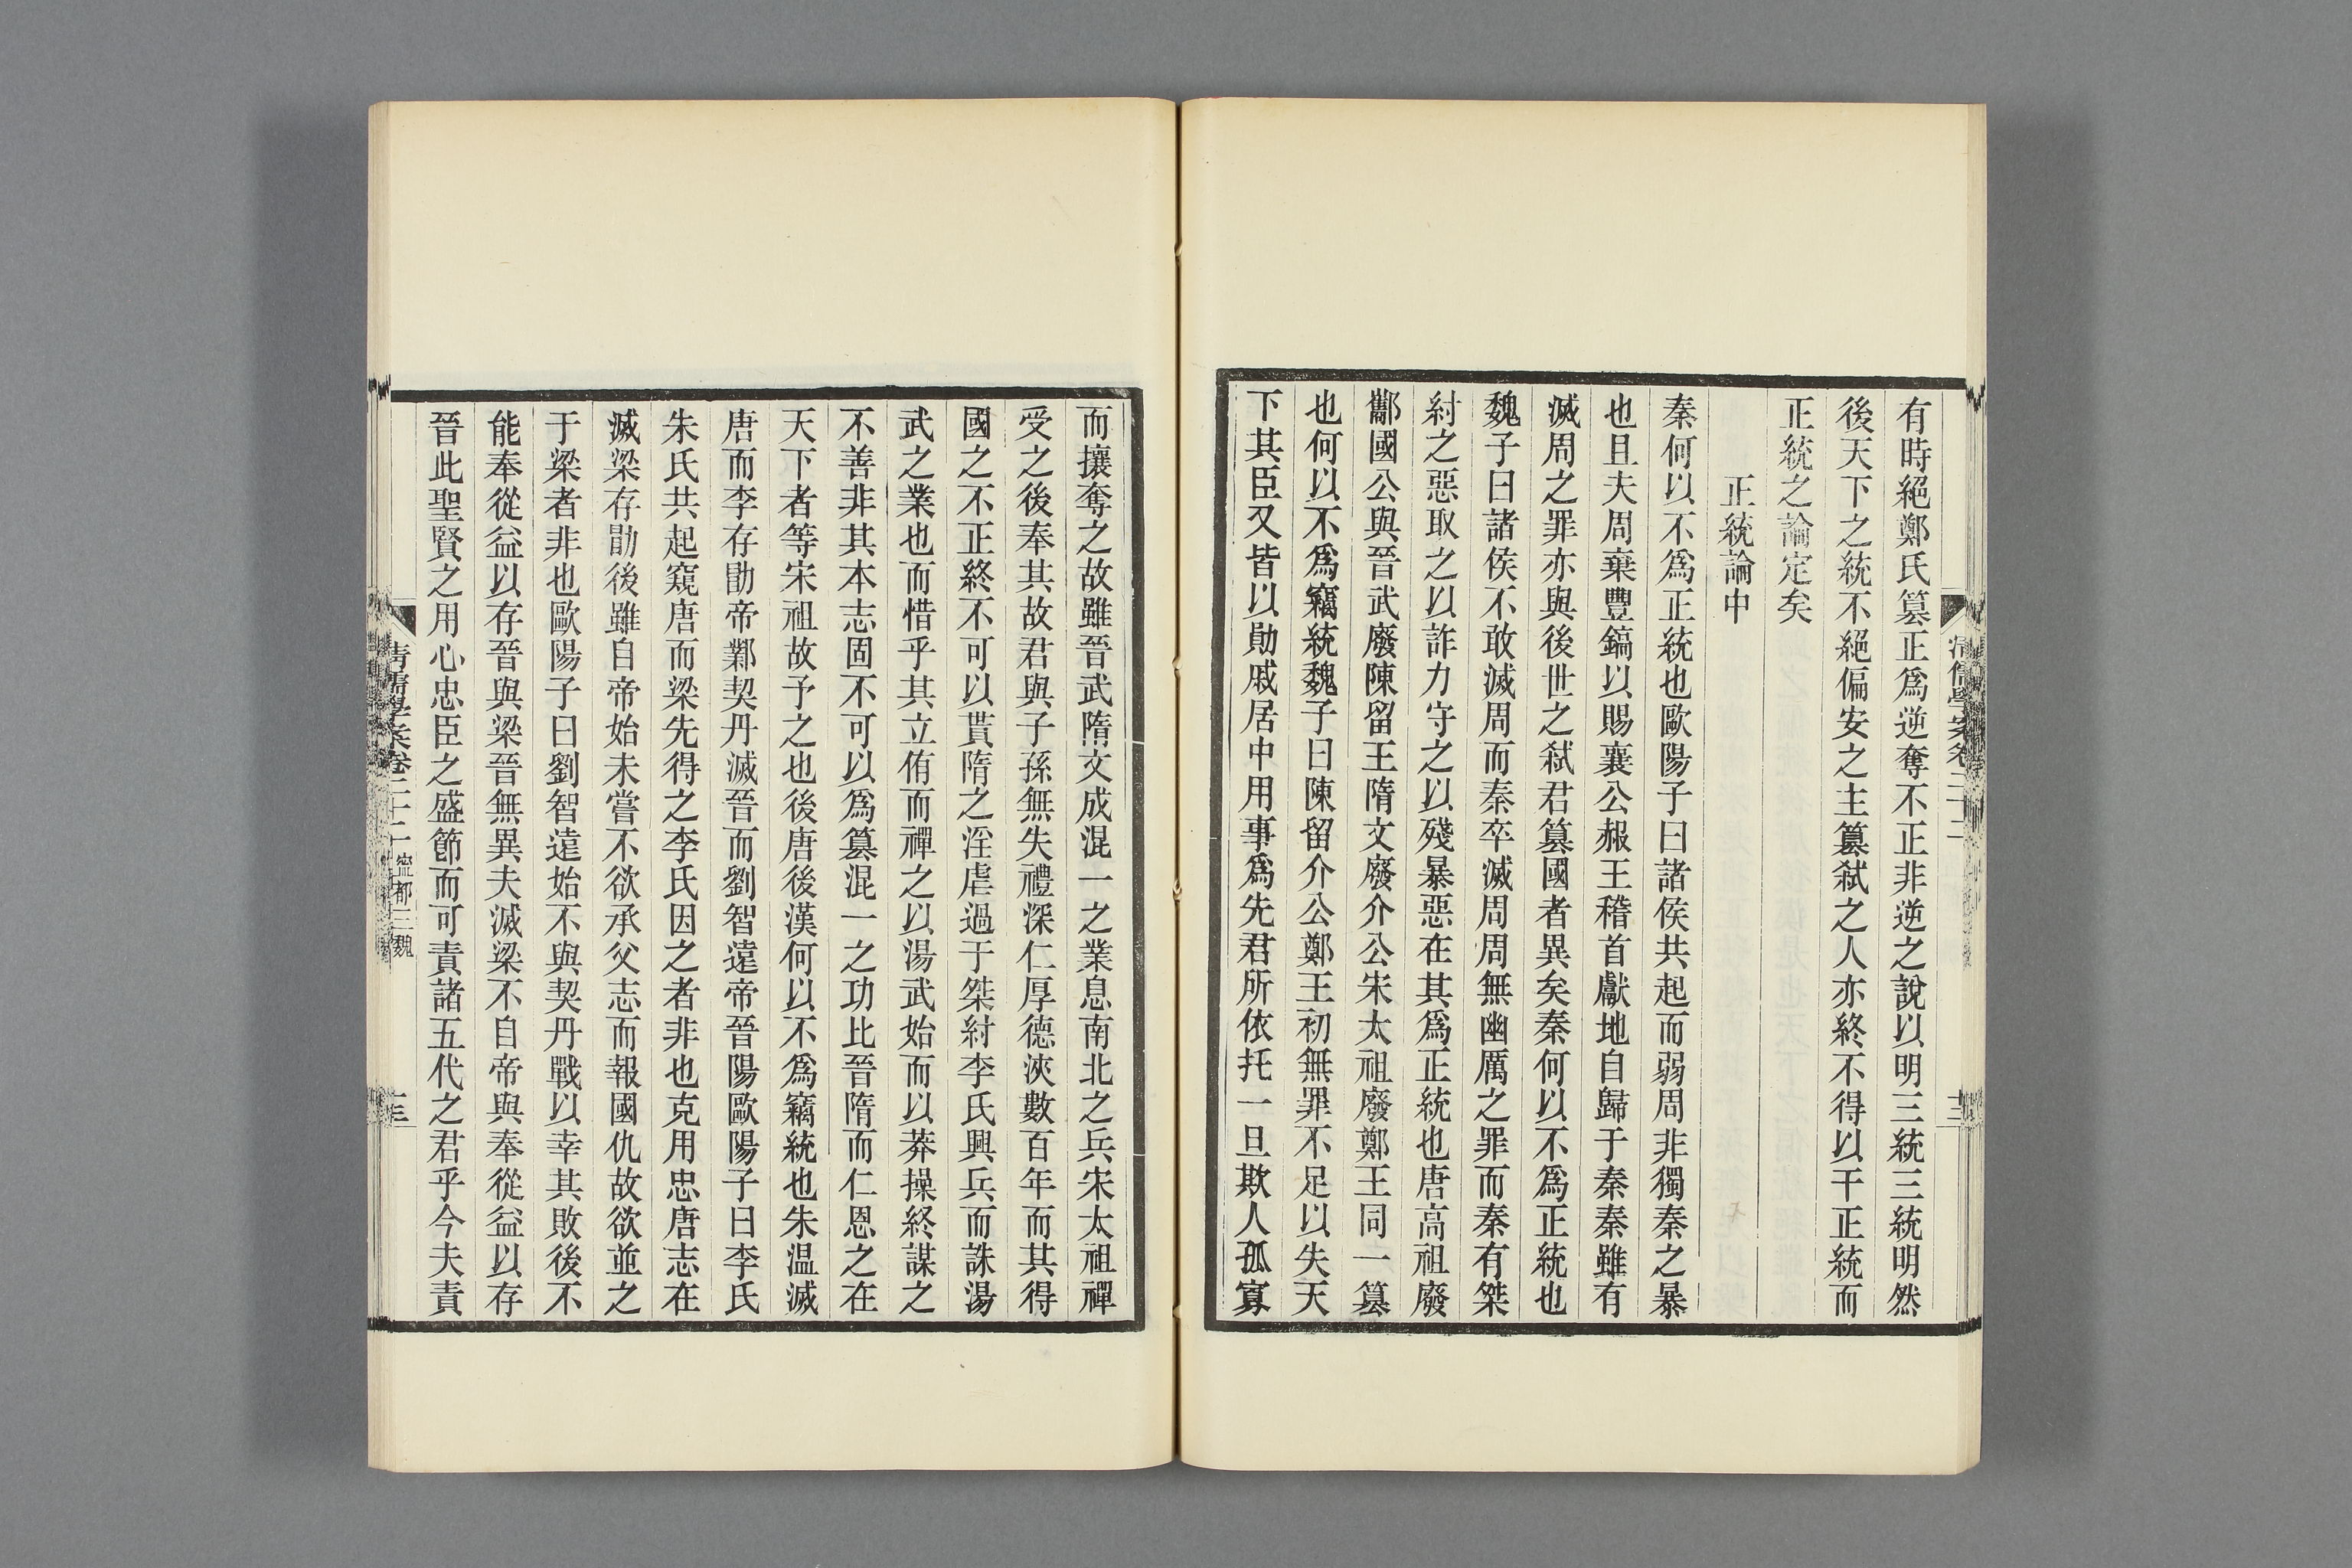 有時絕鄭氏篡正爲逆奪不正非逆之說以明三統三統明然
後天下之統不絕偏安之主篡弑之人亦終不得以干正統而
正統之論定矣
正統論中
秦何以不爲正統也歐陽子曰諸侯共起而弱周非獨秦之暴
也且夫周棄豐鎬以賜襄公赧王稽首獻地自歸于秦秦雖有
滅周之罪亦與後世之弑君篡國者異矣秦何以不爲正統也
魏子曰諸侯不敢滅周而秦卒滅周周無幽厲之罪而秦有桀
紂之惡取之以詐力守之以殘暴惡在其爲正統也唐高祖廢
酅國公與晉武廢陳留王隋文廢介公宋太祖廢鄭王同一篡
也何以不爲竊統魏子曰陳留介公鄭王初無罪不足以失天
下其臣又皆以勛戚居中用事爲先君所依托一旦欺人孤寡
而攘奪之故雖晉武隋文成混一之業息南北之兵宋太祖禪
受之後奉其故君與子孫無失禮深仁厚德浹數百年而其得
國之不正終不可以貰隋之淫虐過于桀紂李氏興兵而誅湯
武之業也而惜乎其立侑而禪之以湯武始而以莽操終謀之
不善非其本志固不可以爲篡混一之功比晉隋而仁恩之在
天下者等宋祖故予之也後唐後漢何以不爲竊統也朱温滅
唐而李存勖帝鄴契丹滅晉而劉智遠帝晉陽歐陽子曰李氏
朱氏共起窺唐而梁先得之李氏因之者非也克用忠唐志在
滅梁存勖後雖自帝始未嘗不欲承父志而報國仇故欲並之
于梁者非也歐陽子曰劉智遠始不與契丹戰以幸其敗後不
能奉從益以存晉與梁晉無異夫滅梁不自帝與奉從益以存
晉此聖賢之用心忠臣之盛節而可責諸五代之君乎今夫責
清儒學案卷二十二
清儒學案卷二十二 寧都三魏